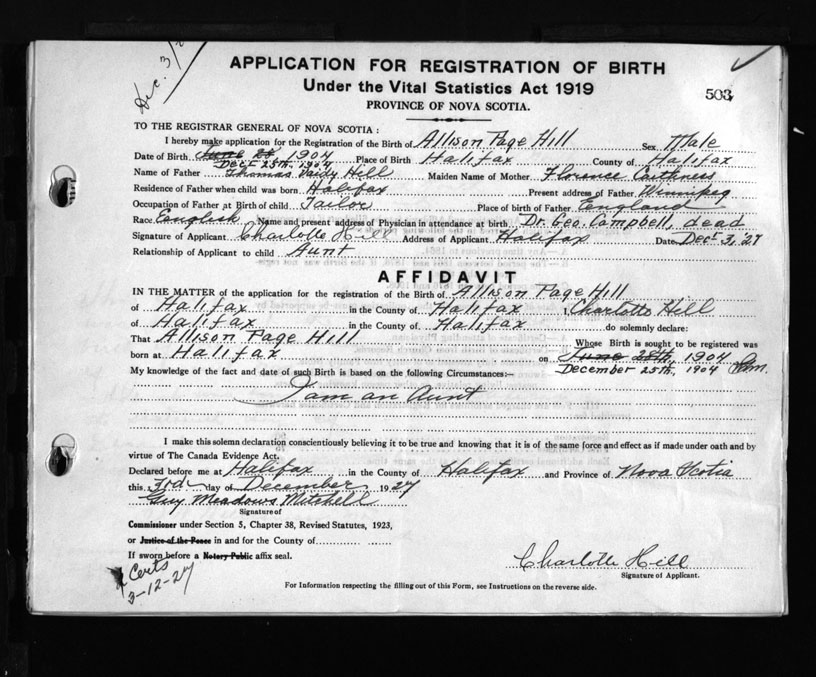 Dec. 3/2
APPLICATION FOR REGISTRATION OF BIRTH
Under the Vital Statistics Act 1919
503
PROVINCE OF NOVA SCOTIA.
TO THE REGISTRAR GENERAL OF NOVA SCOTIA :
I hereby make application for the Registration of the Birth of Allison Page Hill Sex Male
Date of Birth June 28, 1904 Place of Birth Halifax County of Halifax
Dec. 25th, 1904
Name of Father Thomas Hill Maiden Name of Mother Florence Caithness
Residence of Father when child was born Halifax Present address of Father Winnipeg
Occupation of Father at Birth of child Tailor Place of birth of Father England
Race English Name and present address of Physician in attendance at birth Dr. Geo. Campbell, dead
Signature of Applicant Charlotte Hill Address of Applicant Halifax Date Dec. 3, '27
Relationship of Applicant to child Aunt
AFFIDAVIT
IN THE MATTER of the application for the registration of the Birth of Allison Page Hill
of Halifax in the County of Halifax I, Charlotte Hill
of Halifax in the County of Halifax do solemnly declare:
That Allison Page Hill Whose Birth is sought to be registered was
born at Halifax on June 28th, 1904
December 25th, 1904
My knowledge of the fact and date of such Birth is based on the following Circumstances:—
I am an Aunt
I make this solemn declaration conscientiously believing it to be true and knowing that it is of the same force and effect as if made under oath and by
virtue of The Canada Evidence Act.
Declared before me at Halifax in the County of Halifax and Province of Nova Scotia
this 3rd day of December 1927
Guy Meadows Mitchell
Signature of
Commissioner under Section 5, Chapter 38, Revised Statutes, 1923,
or Justice of the Peace in and for the County of
If sworn before a Notary Public affix seal.
Charlotte Hill
Signature of Applicant.
Certs
3-12-27
For Information respecting the filling out of this Form, see Instructions on the reverse side.